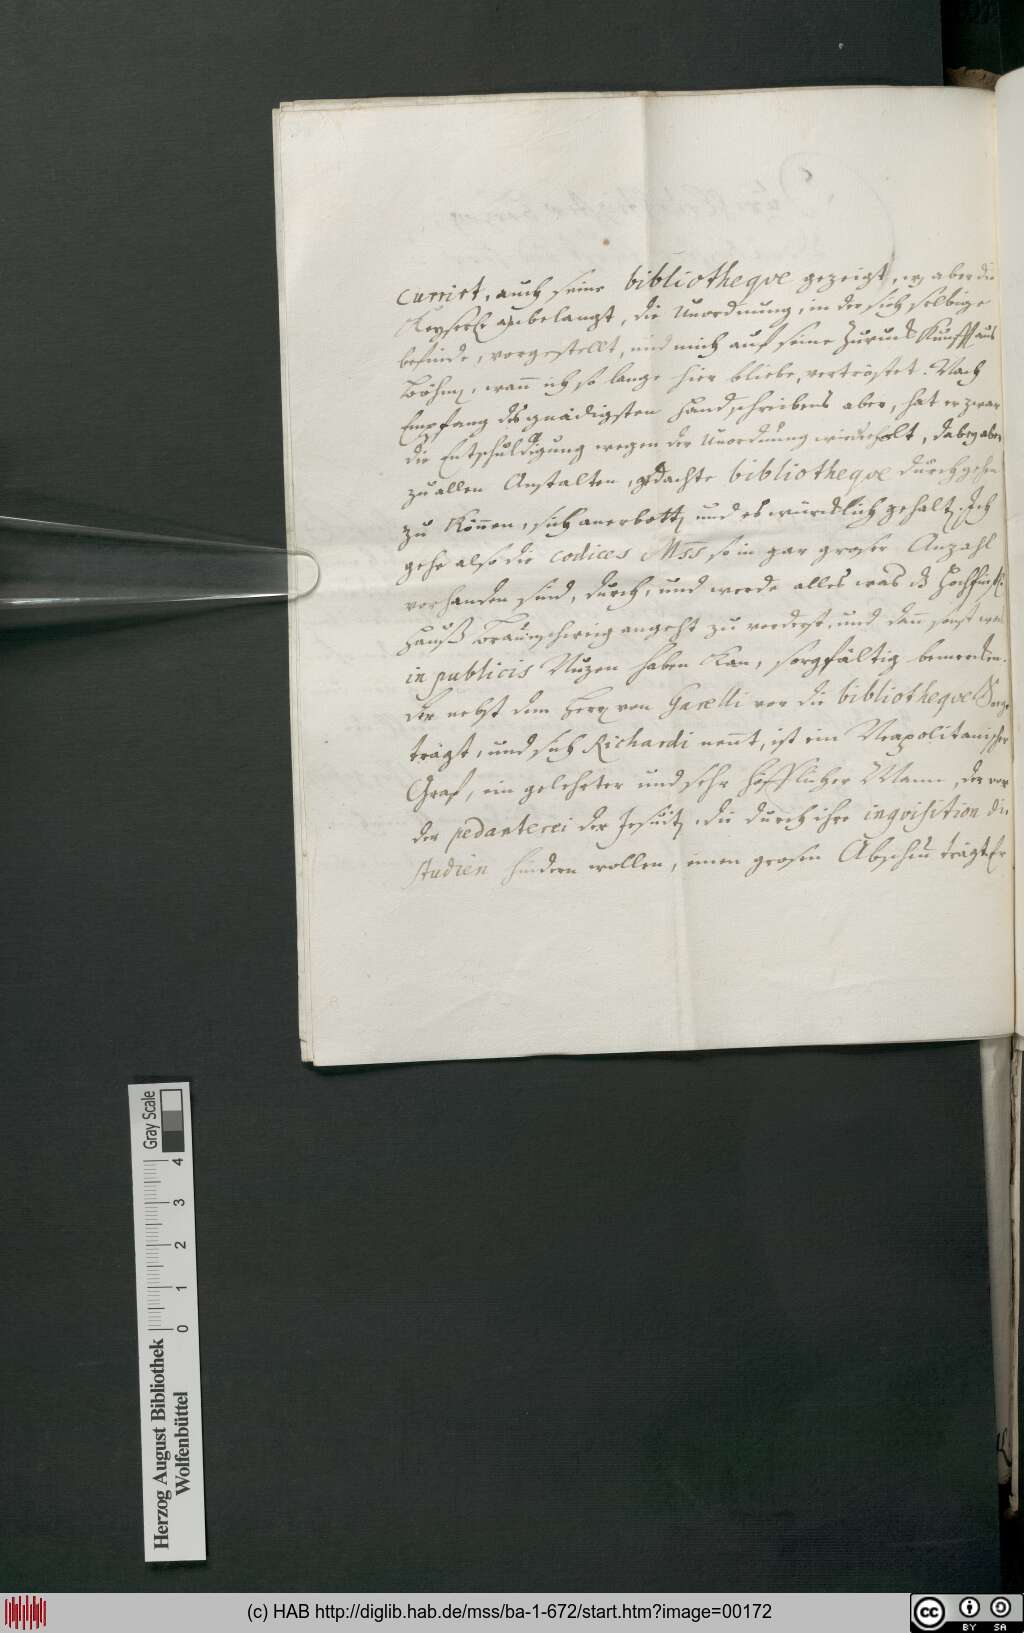 currirt, auch seine bibliotheqve gezeigt, aber die
Keyserl. anbelangt, die Unordnung, in der sich selbige
befinde, vorgestellt, und mich auf seine Zuruck Kunfft aus
Böhm, wann ich so lange hier bliebe, vertröstet. Nach
Empfang des gnädigsten handschreibens aber, hat er zwar
die Entschuldigung wegen der Unordnung wiederholt, dabey aber
zu allen Anstalten, gedachte bibliotheqve durchgehn
zu können, sich anerbott, und es würcklich gehalt. Ich
gehe also die codices Mss so in gar groser Anzahl
vorhanden sind, durch, und werde alles was dz Hochfürstl.
Hauß Braunschweig angeht zu vorderst, und dann sonst was
in publicis Nuzen haben kan, sorgfältig bemercken.
Der nebst dem Herrn von Garelli vor die bibliotheqve Sorge
trägt, und sich Richardi nennt, ist ein Neapolitanischer
Graf, ein gelehrter und sehr höfflicher Mann, der vor
der pedanterei der Jesuit, die durch ihre inqvisition die
studien hindern wollen, einen grosen Abscheu trägt. Er
Herzog August Bibliothek
Wolfenbüttel
0 1 2 3 4
Gray Scale
(c) HAB http://diglib.hab.de/mss/ba-1-672/start.htm?image=00172
cc BY SA